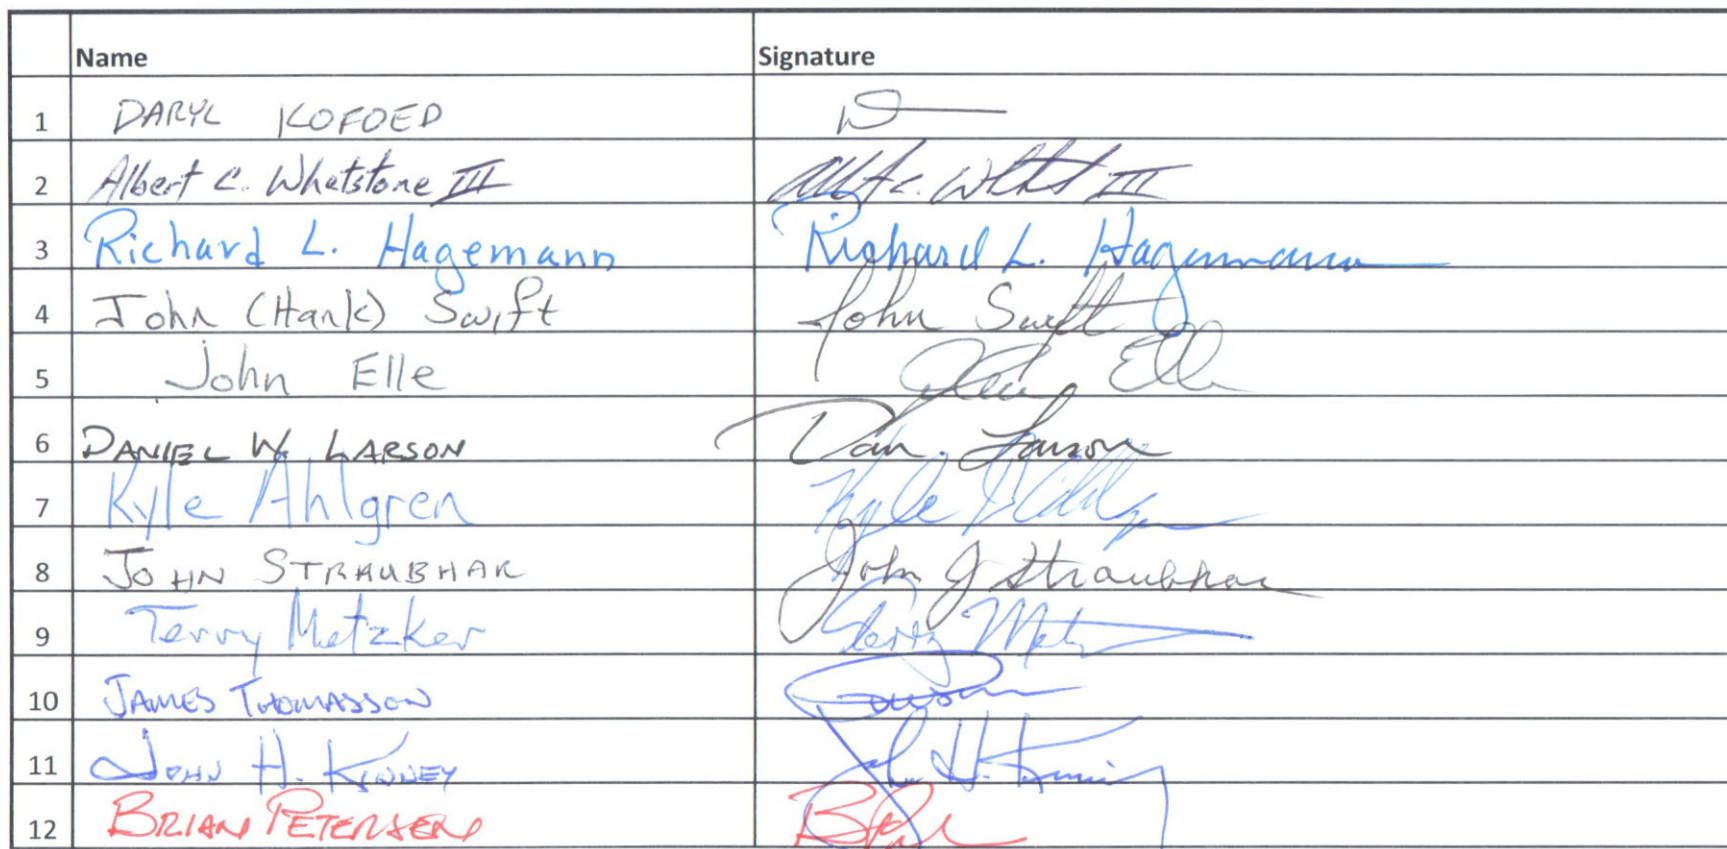 Name Signature
1 DARYL KOFOED
2 Albert C. Whetstone III Albt C. Whtst III
3 Richard L. Hagemann Richard L. Hagemann
4 John (Hank) Swift John Swift
5 John Elle John Elle
6 DANIEL W. LARSON Dan Larson
7 Kyle Ahlgren Kyle
8 JOHN STRAUBHAR John J Straubhar
9 Terry Metzker Terry Metz
10 JAMES THOMASSON
11 JOHN H. KINNEY John H. Kinney
12 BRIAN PETERSEN